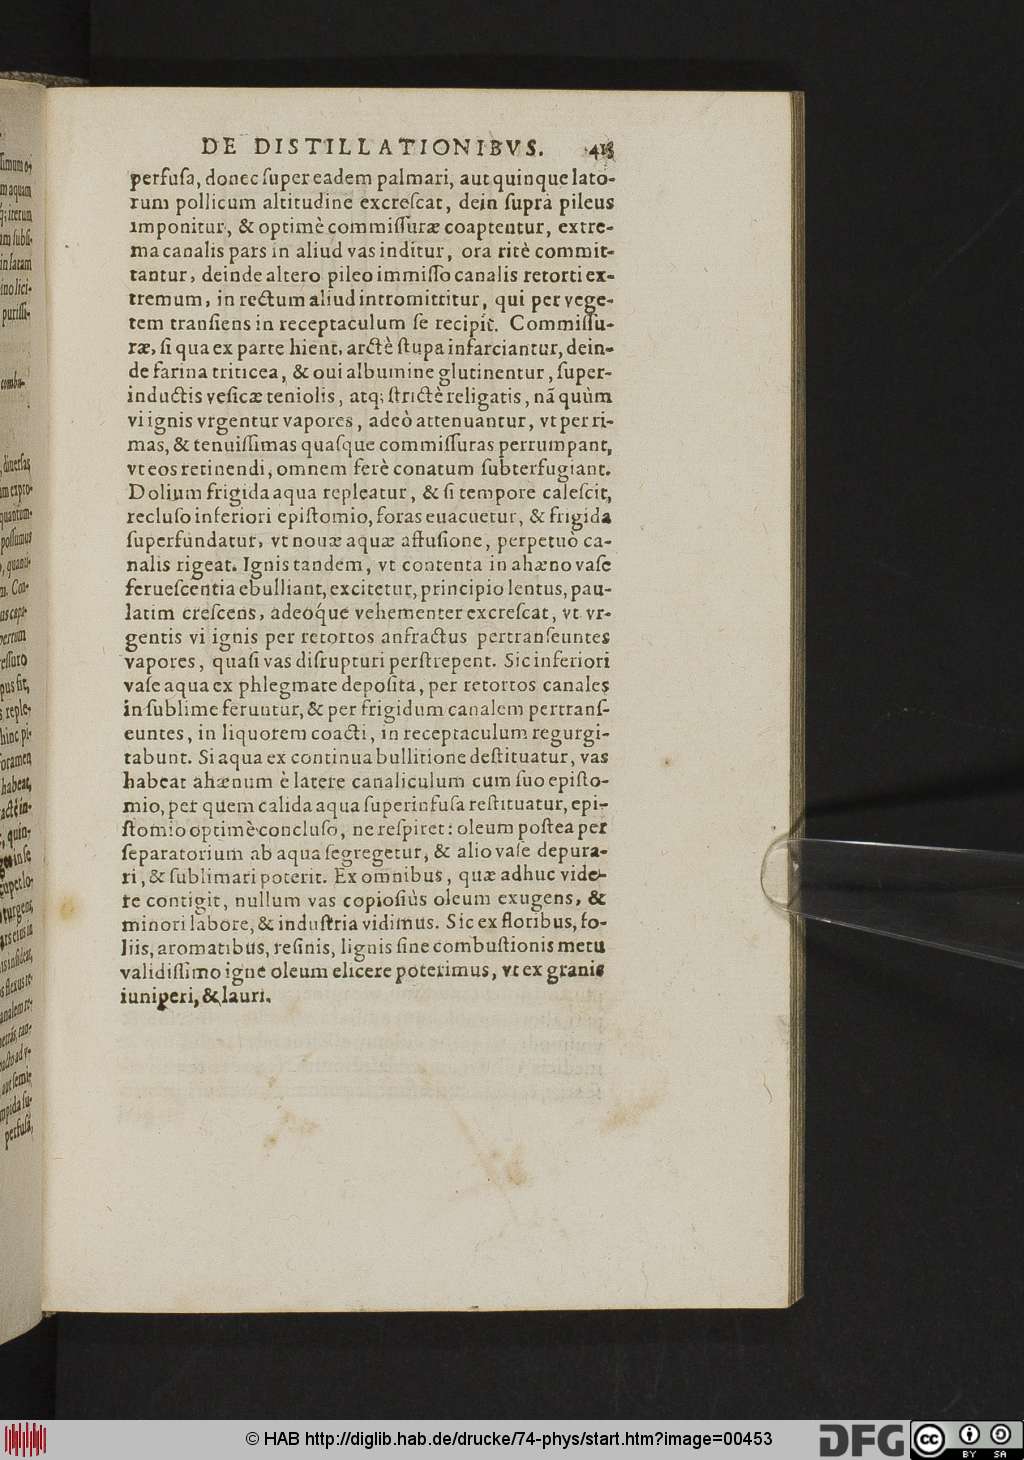 DE DISTILLATIONIBVS.
perfuſa, donec ſuper eadem palmari, aut quinque lato-
rum pollicum altitudine excreſcat, dein ſuprà pileus
imponitur, & optimè commiſſuræ coaptentur, extre-
ma canalis pars in aliud vas inditur, ora ritè commit-
tantur, deinde altero pileo immiſſo canalis retorti ex-
tremum, in rectum aliud intromittitur, qui per vege-
tem tranſiens in receptaculum ſe recipit. Commiſſu-
ræ, ſi qua ex parte hient, arctè ſtupa infarciantur, dein-
de farina triticea, & oui albumine glutinentur, ſuper-
inductis veſicæ teniolis, atq; ſtrictè religatis, nā quùm
vi ignis vrgentur vapores, adeò attenuantur, vt per ri-
mas, & tenuiſſimas quaſque commiſſuras perrumpant,
vt eos retinendi, omnem ferè conatum ſubterfugiant.
Dolium frigida aqua repleatur, & ſi tempore caleſcit,
recluſo inferiori epiſtomio, foras euacuetur, & frigida
ſuperfundatur, vt nouæ aquæ affuſione, perpetuò ca-
nalis rigeat. Ignis tandem, vt contenta in ahæno vaſe
ferueſcentia ebulliant, excitetur, principio lentus, pau-
latim creſcens, adeóque vehementer excreſcat, vt vr-
gentis vi ignis per retortos anfractus pertranſeuntes
vapores, quaſi vas diſrupturi perſtrepent. Sic inferiori
vaſe aqua ex phlegmate depoſita, per retortos canales
in ſublime feruntur, & per frigidum canalem pertranſ-
euntes, in liquorem coacti, in receptaculum regurgi-
tabunt. Si aqua ex continua bullitione deſtituatur, vas
habeat ahænum è latere canaliculum cum ſuo epiſto-
mio, per quem calida aqua ſuperinfuſa reſtituatur, epi-
ſtomio optimè concluſo, ne reſpiret: oleum poſtea per
ſeparatorium ab aqua ſegregetur, & alio vaſe depura-
ri, & ſublimari poterit. Ex omnibus, quæ adhuc vide-
re contigit, nullum vas copioſiùs oleum exugens, &
minori labore, & induſtria vidimus. Sic ex floribus, fo-
liis, aromatibus, reſinis, lignis ſine combuſtionis metu
validiſſimo igne oleum elicere poterimus, vt ex granis
iuniperi, & lauri.
© HAB http://diglib.hab.de/drucke/74-phys/start.htm?image=00453
DFG
cc
BY SA